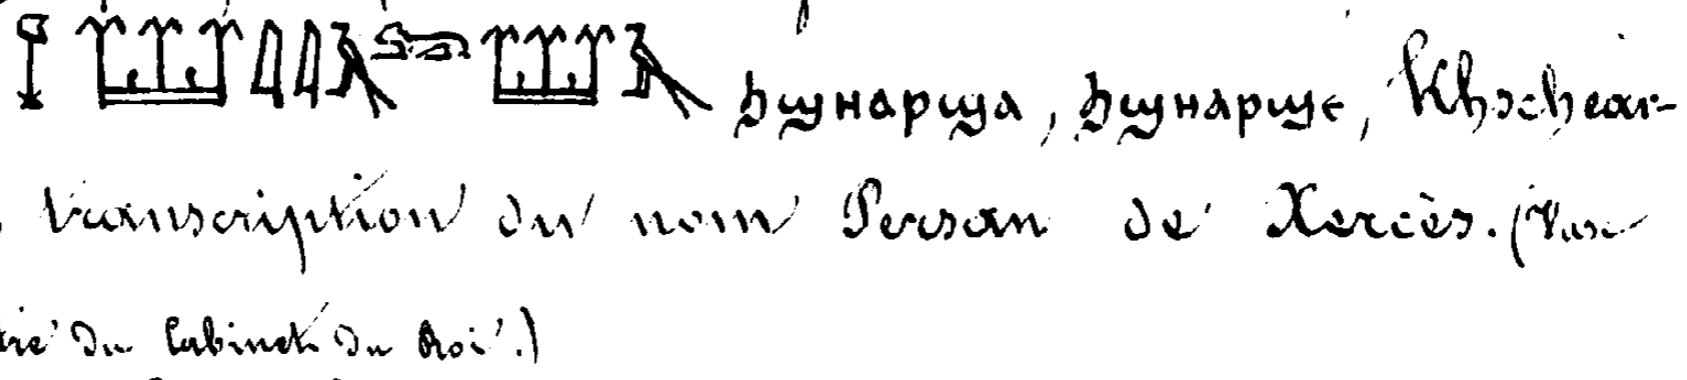 𓆼𓆷𓇋𓇋𓄿𓃭𓆷𓄿 ϧϣⲏⲁⲣϣⲁ, ϧϣⲏⲁⲣϣⲉ, Khschear-
transcription du nom Persan de Xercès. (Vase
tre du Cabinet du Roi.)